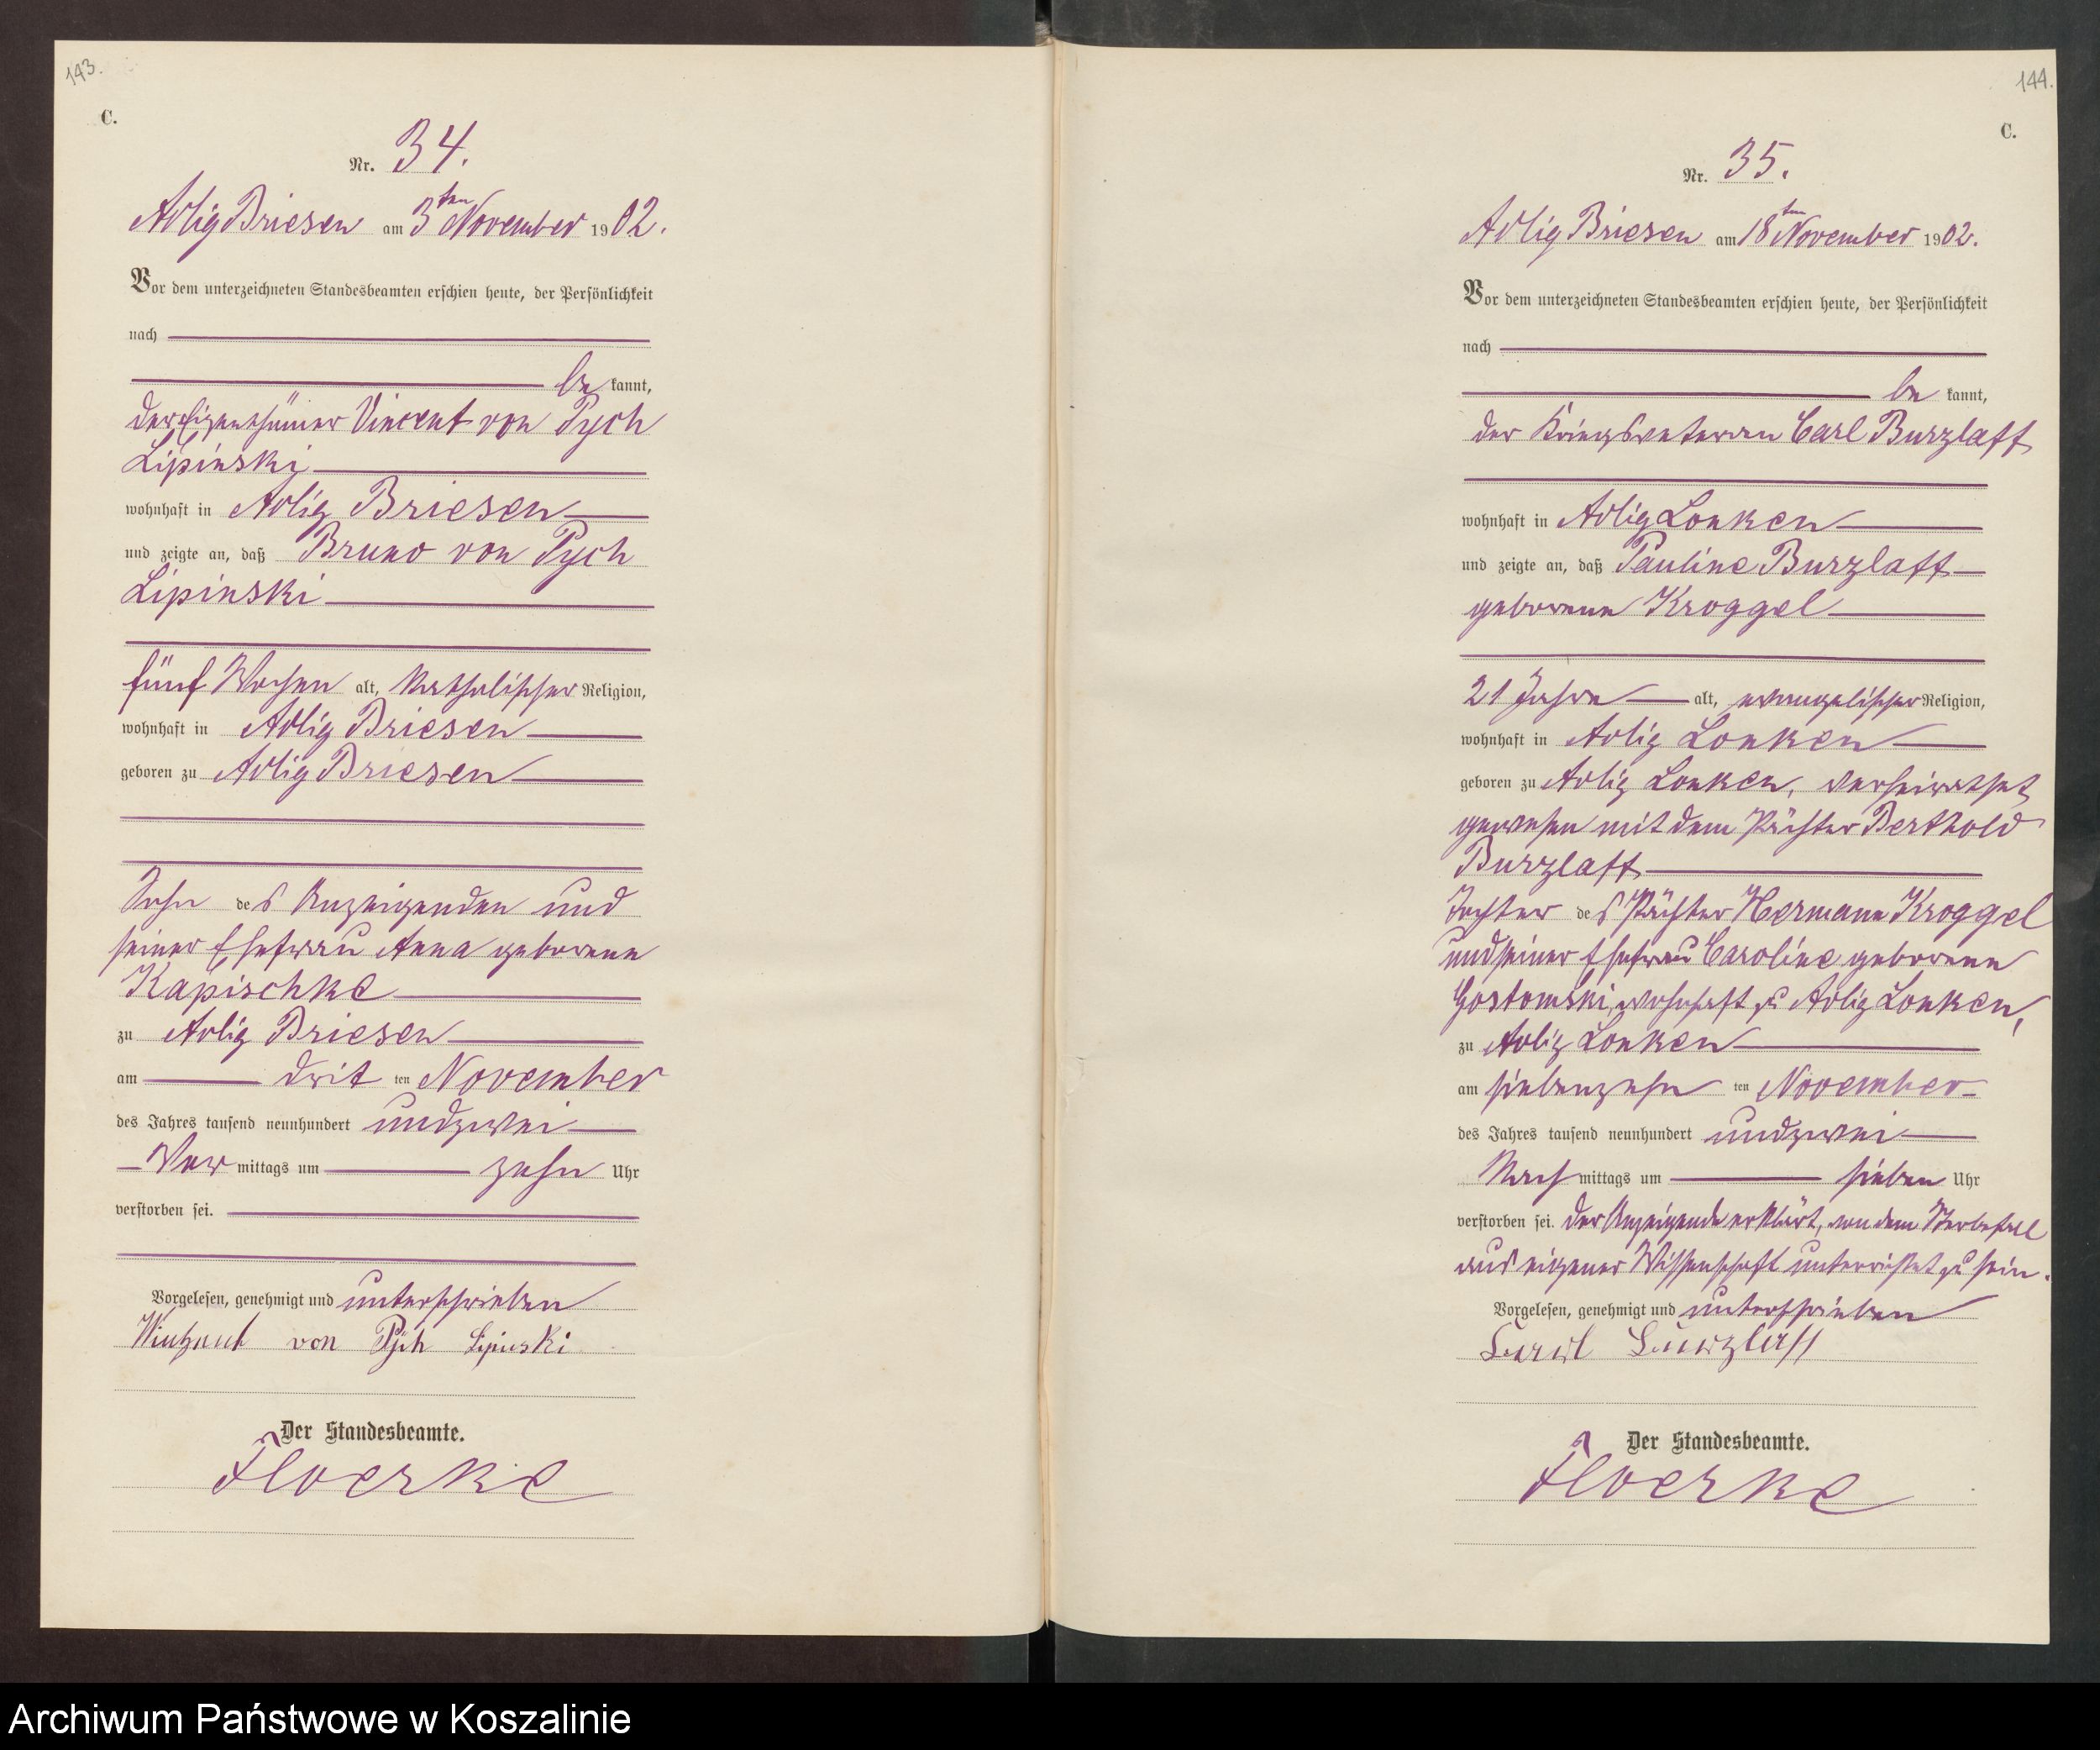 143.
C.
Nr. 34.
Adlig Briesen am 3ten November 1902.
Vor dem unterzeichneten Standesbeamten erschien heute, der Persönlichkeit
nach
be kannt,
der Eigenthümer Vincent von Pych
Lipinski
wohnhaft in Adlig Briesen
und zeigte an, daß Bruno von Pych
Lipinski
fünf Wochen alt, katholischer Religion,
wohnhaft in Adlig Briesen
geboren zu Adlig Briesen
Sohn des Anzeigenden und
seiner Ehefrau Anna geborene
Kapischke
zu Adlig Briesen
am drit ten November
des Jahres tausend neunhundert und zwei
Vor mittags um zehn Uhr
verstorben sei.
Vorgelesen, genehmigt und unterschrieben
Winzent von Pych Lipinski
Der Standesbeamte.
Floerke
144.
C.
Nr. 35.
Adlig Briesen am 18ten November 1902.
Vor dem unterzeichneten Standesbeamten erschien heute, der Persönlichkeit
nach
be kannt,
der Kriegsveteran Carl Burzlaff
wohnhaft in Adlig Lonken
und zeigte an, daß Pauline Burzlaff
geborene Kroggel
21 Jahre alt, evangelischer Religion,
wohnhaft in Adlig Lonken
geboren zu Adlig Lonken, verheirathet
gewesen mit dem Pächter Berthold
Burzlaff
Tochter des Pächter Hermann Kroggel
und seiner Ehefrau Caroline geborene
Gostomski, wohnhaft zu Adlig Lonken,
zu Adlig Lonken
am siebenzehn ten November
des Jahres tausend neunhundert und zwei
Nach mittags um sieben Uhr
verstorben sei. Der Anzeigende erklärt, von dem Sterbefall
aus eigener Wissenschaft unterrichtet zu sein.
Vorgelesen, genehmigt und unterschrieben
Carl Burzlaff
Der Standesbeamte.
Floerke
Archiwum Państwowe w Koszalinie